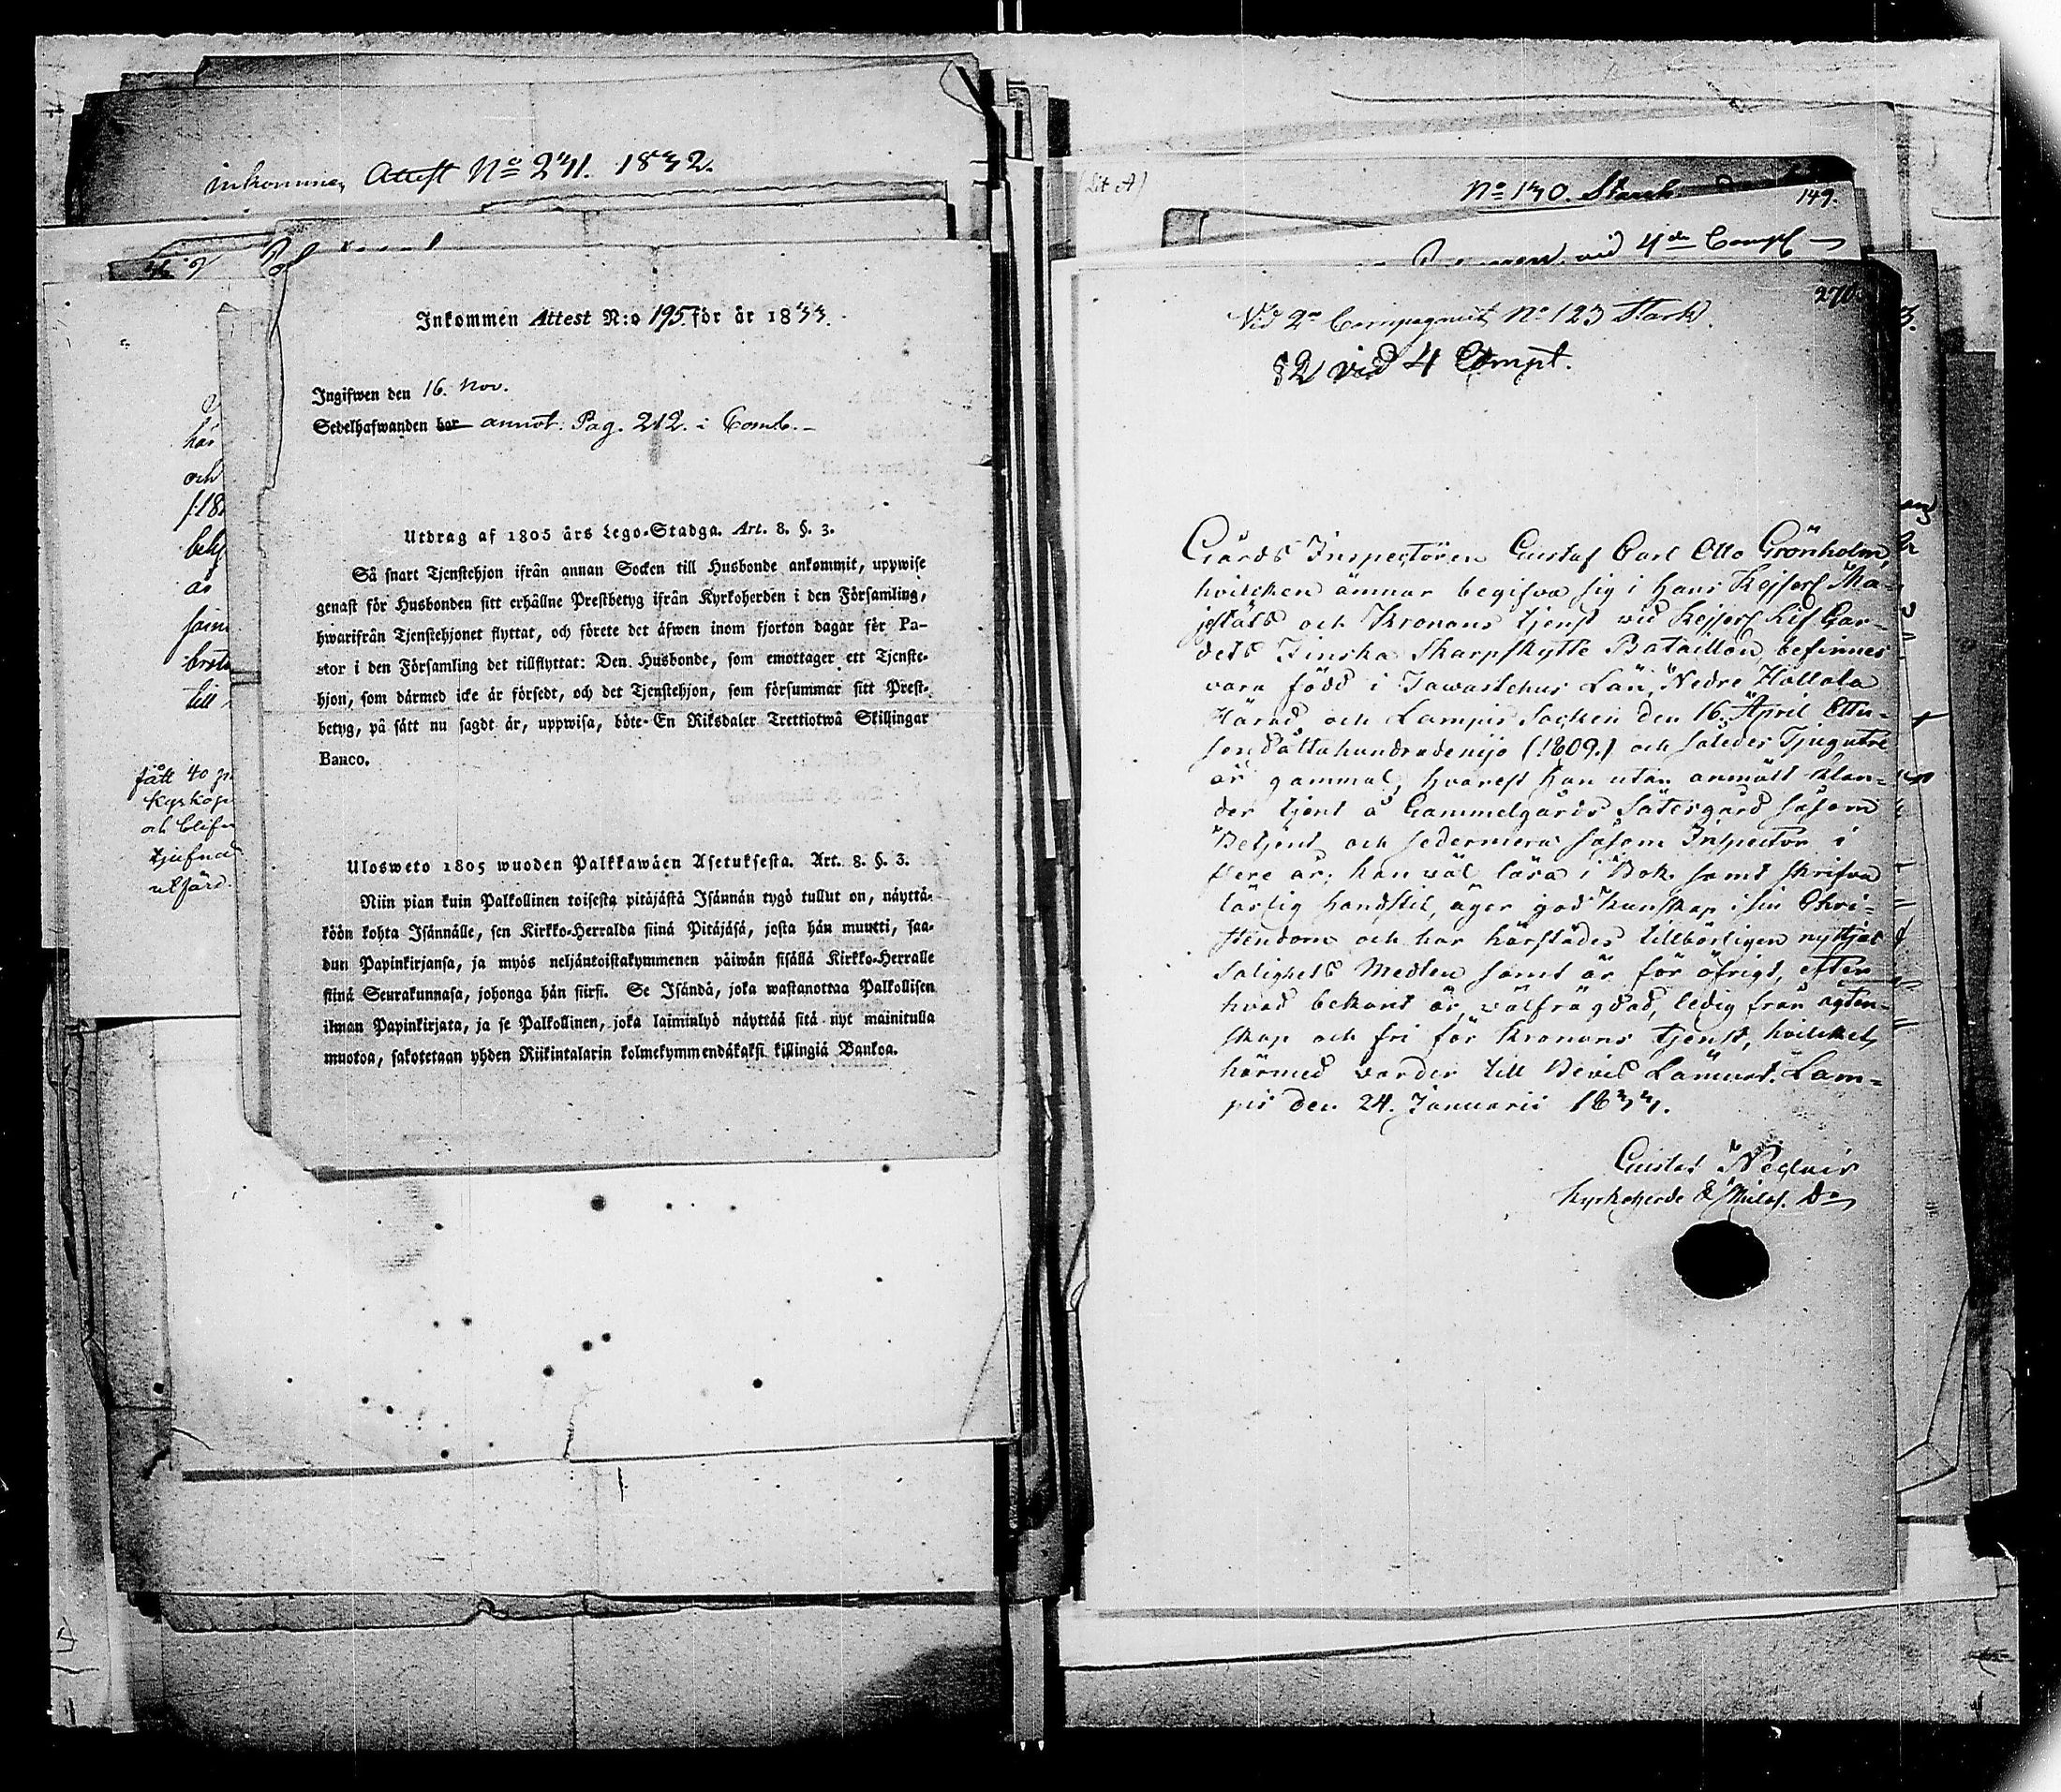 inkommen Attest No 241. 1832.
Inkommen Attest N:o 195. för år 1833.
Ingifwen den 16. Nov.
Sedelhafwanden har annot: Pag. 212. i Comb.
Utdrag af 1805 års Lego-Stadga. Art. 8. §. 3.
Så snart Tjenstehjon ifrån annan Socken till Husbonde ankommit, uppwise
genast för Husbonden sitt erhållne Prestbetyg ifrån Kyrkoherden i den Församling,
hwarifrån Tjenstehjonet flyttat, och förete det äfwen inom fjorton dagar för Pa-
stor i den Församling det tillflyttat: Den Husbonde, som emottager ett Tjenste-
hjon, som därmed icke är försedt, och det Tjenstehjon, som försummar sitt Prest-
betyg, på sätt nu sagdt är, uppwisa, böte En Riksdaler Trettiotwå Skillingar
Banco.
Ulosweto 1805 wuoden Palkkawäen Asetuksesta. Art. 8. §. 3.
Niin pian kuin Palkollinen toisesta pitäjästä Isännän tygö tullut on, näyttä-
köön kohta Isännälle, sen Kirkko-Herralda siinä Pitäjäsä, josta hän muutti, saa-
dun Papinkirjansa, ja myös neljäntoistakymmenen päiwän sisällä Kirkko-Herralle
siinä Seurakunnasa, johonga hän siirsi. Se Isändä, joka wastanottaa Palkollisen
ilman Papinkirjata, ja se Palkollinen, joka laiminlyö näyttää sitä nyt mainitulla
muotoa, sakotetaan yhden Riikintalarin kolmekymmendäkaksi killingiä Bankoa.
här
och
till
fått 40
Kyrkop
och blifv
tjufnad
utfärd.
(Lit A)
No 130. Stark
149.
vid 4de Comp
270
Vid 2a Compagniet No 123 Stark.
§2 vid 4 Compt.
Gårds Inspectoren Gustaf Carl Otto Grönholm,
hvilcken ämnar begifva sig i Hans Kejserl Ma-
jestäts och Kronans tjenst vid Kejserl Lif Gar-
dets Finska Skarpskytte Bataillon, befinnes
vara född i Tawastehus Län, Nedre Hollola
Härad och Lampis Socken den 16. April Ettu-
send åttahundradenijo (1809.) och således Tjugutre
år gammal, hvarest han utan anmält klan-
der tjent å Gammelgårds Säterigård såsom
Betjent och sedermera såsom Inspector i
flere år; kan väl läsa i Bok samt skrifva
läslig handstil, äger god kunskap i sin Chri-
stendom och har härstädes tillbörligen nyttjat
Salighets Medlen samt är för öfrigt, efter
hvad bekant är, välfrägdad, ledig från ägten-
skap och fri för Kronans tjenst, hvilcket
härmed varder till Bevis Lämnat. Lam-
pis den 24. Januarii 1833.
Gustaf
Kyrkoherde &